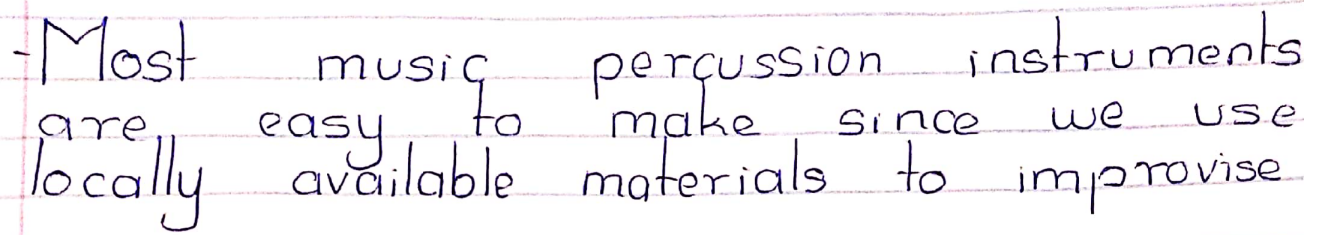 - Most music percussion instruments
are easy to make since we use
locally available materials to improvise